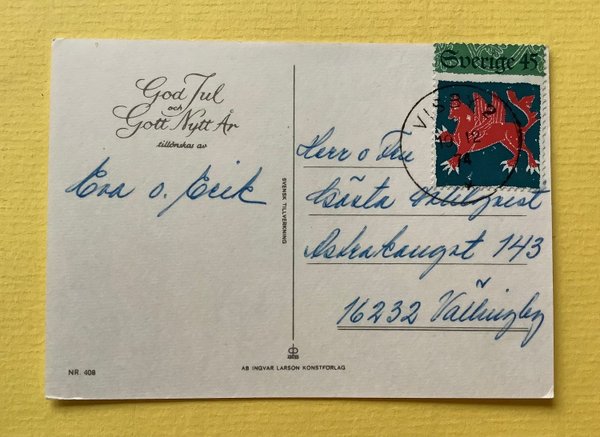 God Jul
och
Gott Nytt År
tillönskas av
Eva o. Erik
Sverige 45
VISBY
12
74
Herr o Fru
Gösta
Astrakangat 143
16232 Vällingby
SVENSK TILLVERKNING
NR. 408
AB INGVAR LARSON KONSTFÖRLAG